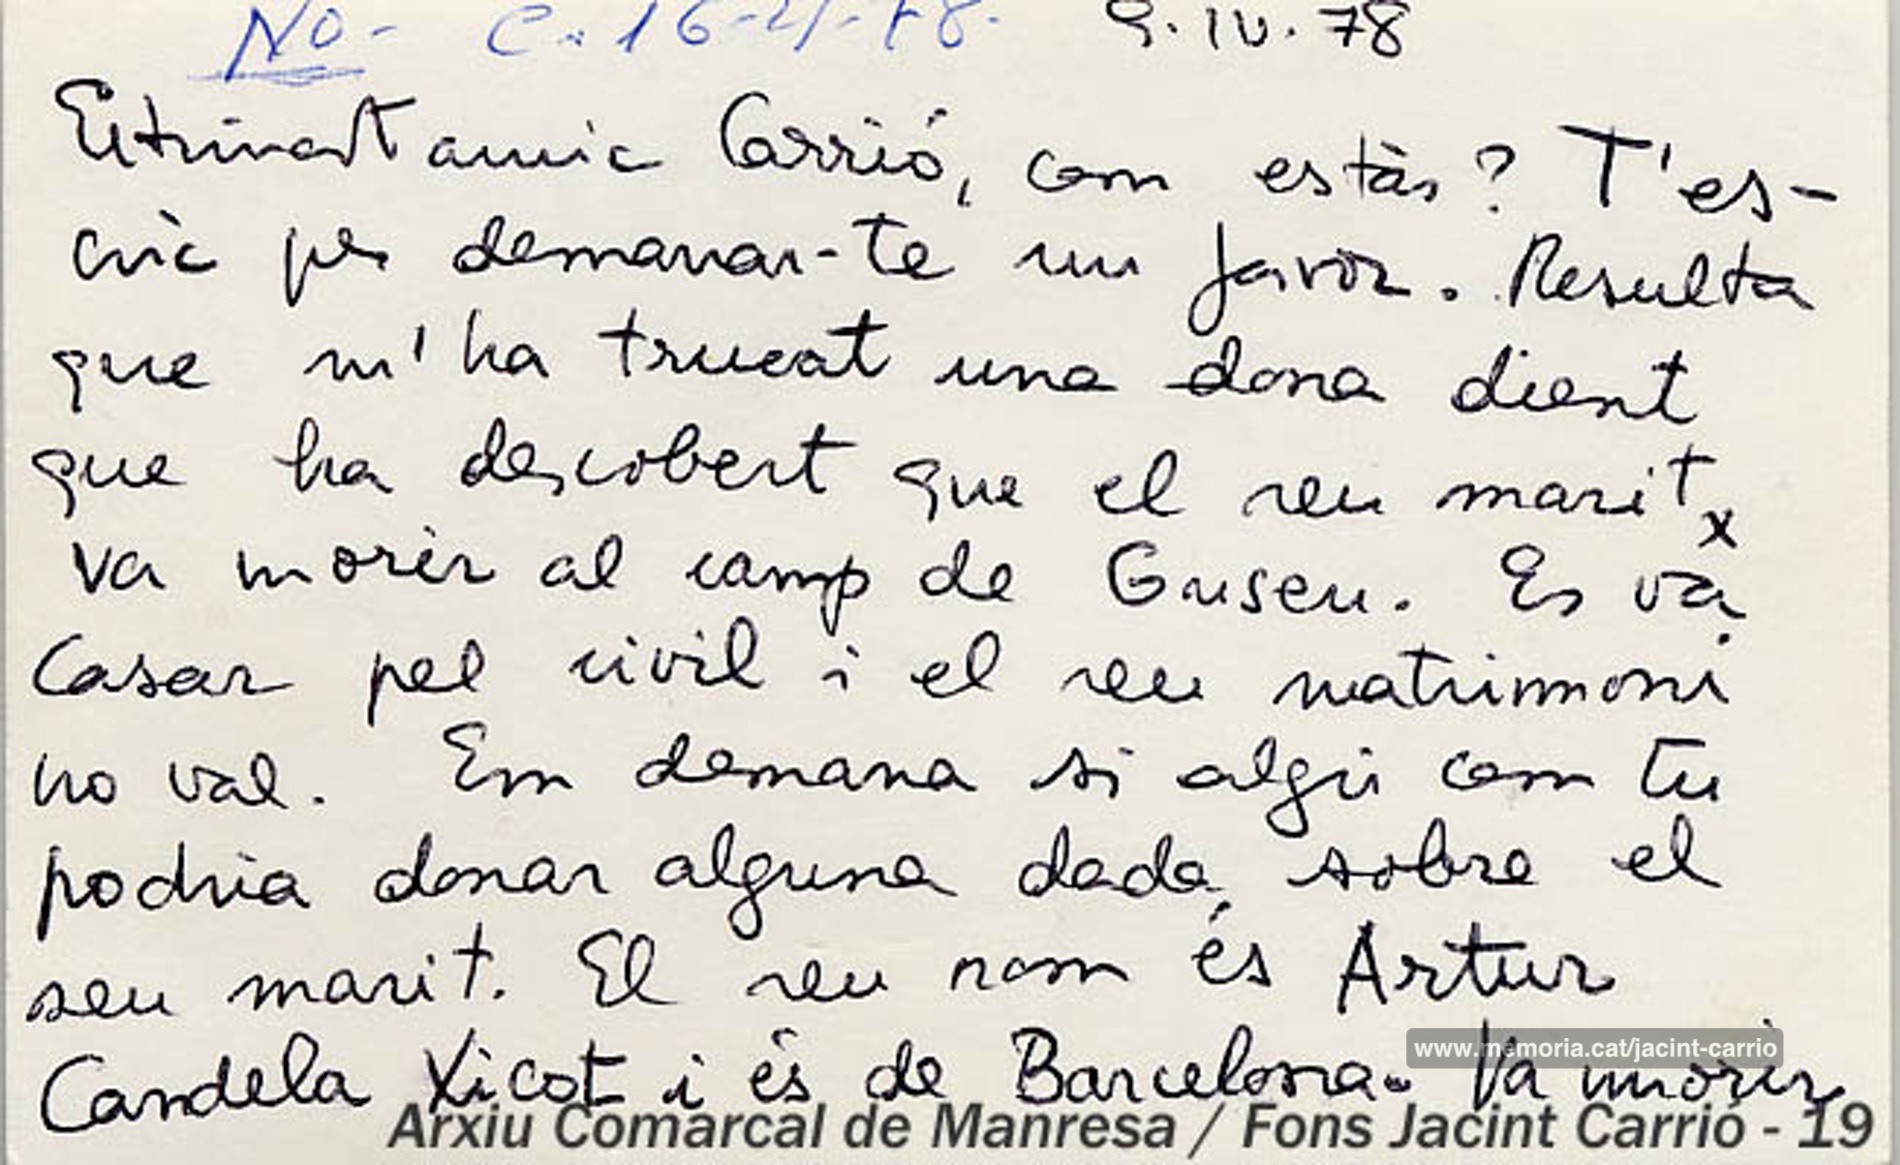 No- C. 16-4-78. 9.IV.78
Estimat amic Carrió, com estàs? T'es-
cric per demanar-te un favor. Resulta
que m'ha trucat una dona dient
que ha descobert que el seu marit x
va morir al camp de Gusen. Es va
casar pel civil i el seu matrimoni
no val. Em demana si algú com tu
podria donar alguna dada sobre el
seu marit. El seu nom és Artur
Candela Xicot i és de Barcelona. Va morir
www.memoria.cat/jacint-carrio
Arxiu Comarcal de Manresa / Fons Jacint Carrió - 19